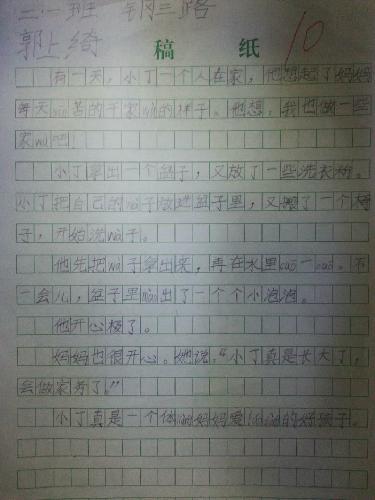 二·一班 钢三路
郭上绮
10
稿 纸
有一天,小丁一个人在家,他想起了妈妈
每天xīn苦的干家wù的样子。他想,我也做一些
家wù吧!
小丁拿出一个盆子,又放了一些洗衣粉。
小丁把自己的wà子放进盆子里,又搬了一个椅
子,开始洗wà子。
他先把wà子拿出来,再在水里cuō一cuō。不
一会儿,盆子里mào出了一个个小泡泡。
他开心极了。
妈妈也很开心。她说:“小丁真是长大了,
会做家务了。”
小丁真是一个体 妈妈爱 的好孩子。